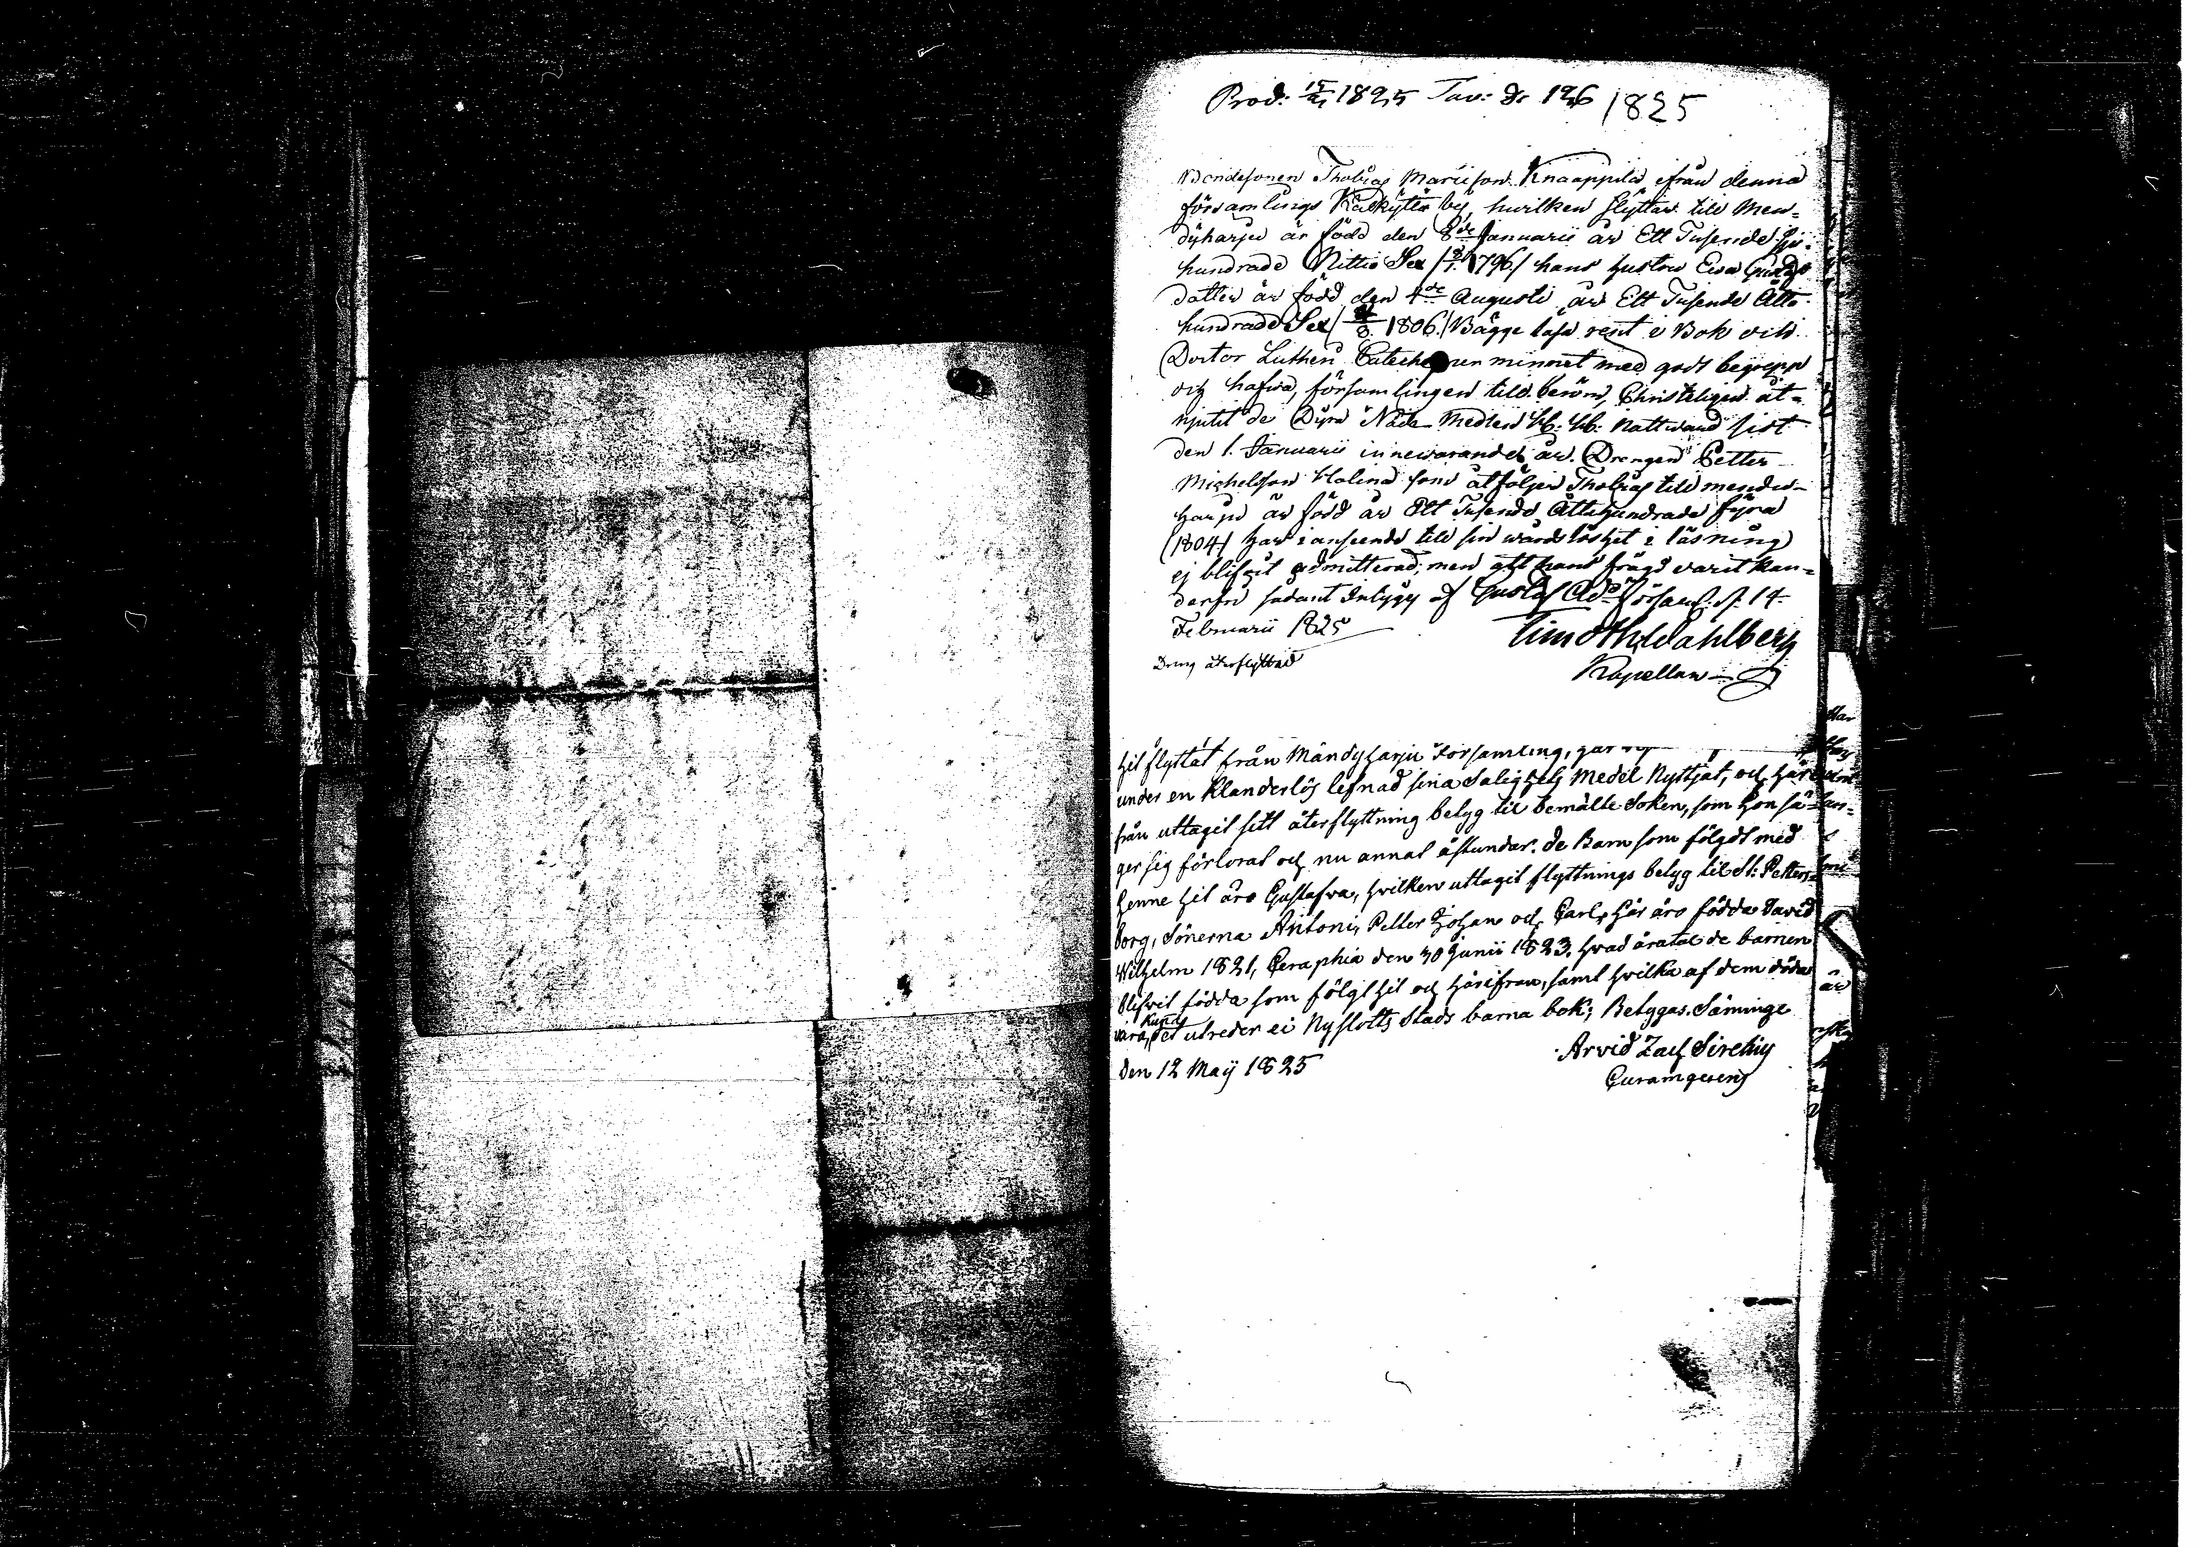 Prod: 15/2 1825 Tav: Sr 126 1825
Bondesonen Thobias Mariison Knaappila ifrån denna
församlings Kälkylä by, hwilken flyttar till Men-
dyharju är född den 8de Januarii år Ett Tusende Sju-
hundrade Nittio Sex /8/1 1796/ hans hustru Eva Gustafs
dotter är född den 4de Augusti år Ett Tusende Åtta
hundrade Sex / 4/8 1806./ Bägge läsa rent i Bok och
Doctor Lutheri Cateches ur minnet med godt begrepp
och hafva, församlingen till beröm, Christeligen åt-
njutit de Dyra Nåde-Medlen HH. HH. Nattward sist
den 1. Januarii innewarande år. Drengen Petter
Michelson Halina som åtföljer Thobias till Mendu-
harju är född år Ett Tusende Åttahundrade fyra
(1804) har i anseende till sin wårdslöshet i läsning
ej blifvit admitterad; men att hans frägd varit klan-
derfri sådant intygg af Gustaf Ad. Församl. d. 14
Februarii 1825
Timoth Wahlberg
Dreng återflyttad
Kapellan
hit flyttat från Mändyharju Församling, har
under en klanderlös lefnad sina Salighets Medel Nyttjat, och här
från uttagit sitt återflyttning betyg til bemälte Soken, som hon sä-
ger sig förlorat och nu annat åstundar. de Barn som fölgdt med
henne hit äro Gustafva, hvilken uttagit flyttnings betyg til St: Petters-
borg, Sönerna Anton, Petter Johan och Carl, här äro födda David
Wilhelm 1821, Ceraphia den 30 Junii 1823, hvad åratal de barnen
blifvit födda som fölgt hit och härifran, samt hvilka af dem döda
kunde
vara, det utreder ei Nyslotts Stads barna bok; Betygas. Säminge
den 12 Maij 1825
Arvid Zach Sirelius
Curam gerens